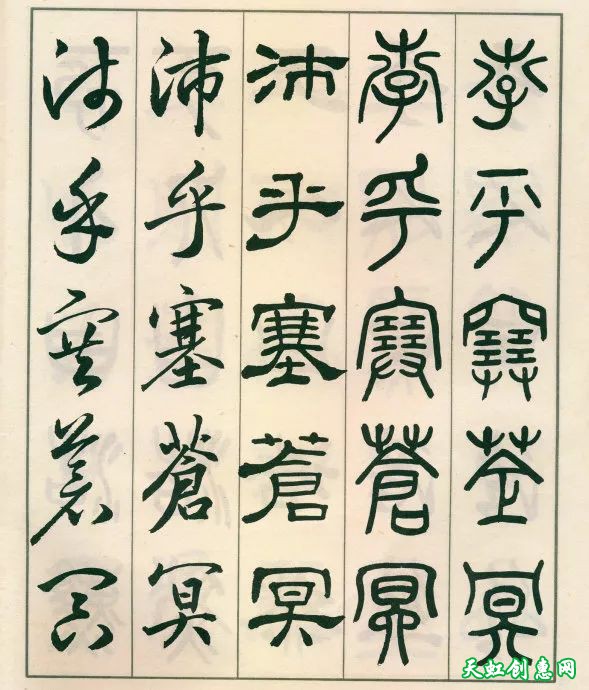 孛乎塞蒼冥
孛乎塞蒼冥
沛乎塞蒼冥
沛乎塞蒼冥
沛乎塞蒼冥
天虹创惠网